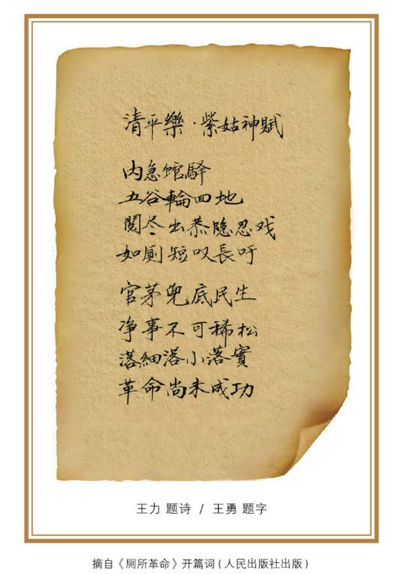 清平樂·紫姑神賦
内急馆驛
五谷輪回地
閱尽出恭隐忍戏
如厕短叹長吁
官茅兜底民生
净事不可稀松
落細落小落實
革命尚未成功
王力 题诗 / 王勇 题字
摘自《厕所革命》开篇词(人民出版社出版)